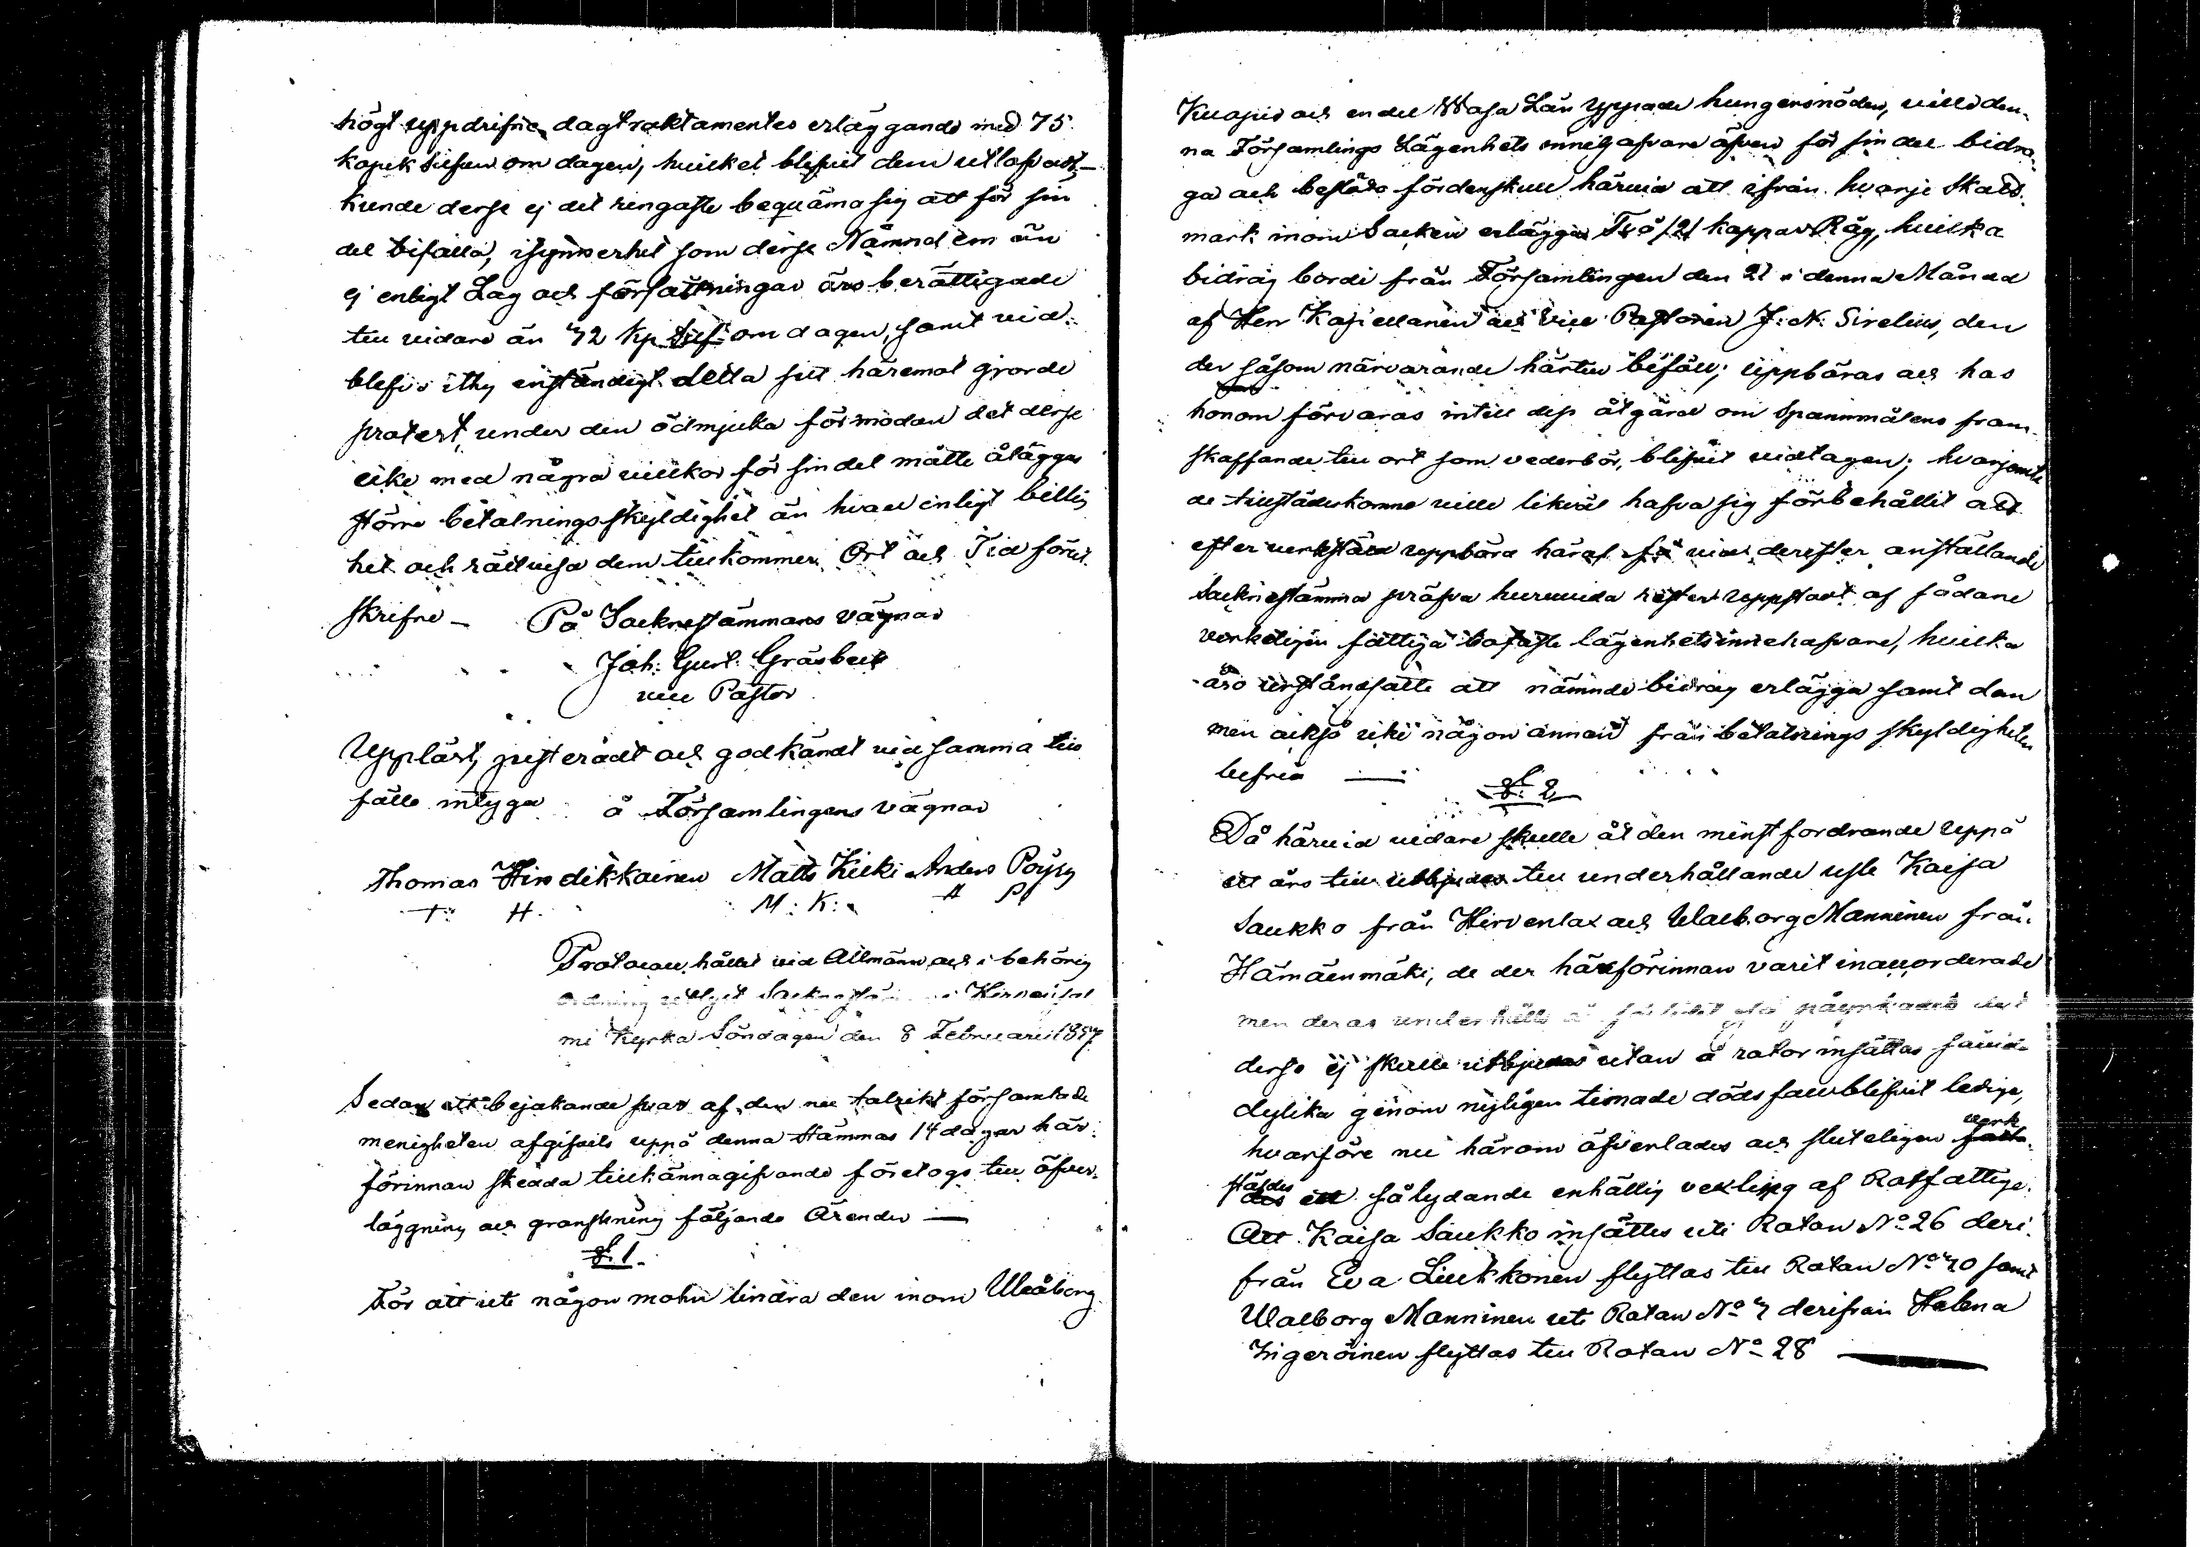 högt uppdrifne dagtraktamentes erläggande med 75
kopek silfver om dagen, hvilket blifvit dem
kunde derse ej det ringaste bequäma sig att för sin
del bifalla, isynnerhet som derse Nämndemän
ej enligt Lag och författningar äro berättigade
till vidare än 42 Kp Silf: om dagen, samt vid-
blefvo ithy enständigt detta sitt häremot gjorde
protest, under den ödmjuka förmodan det derse
icke med några villkor för sin del måtte åläggas
större betalningsskyldighet än hvad enligt billig
het och rättvisa dem tillkommer. Ort och Tid förut
skrifne — På Sacknestämmans vägnar
Joh: Gust: Gråsbeck
vice Pastor
Uppläst, justeradt och godkändt vid samma till
fälle intyga å Församlingens vägnar
Thomas Hindikkainen Matts Kieki Anders Pöysy
T: H. M: K: A P
Protocoll, hållet vid Allmänn och i behörig
ordning utlyst Sacknestämma i Hirvensal
mi Kyrka Söndagen den 8 Februarii 1857
Sedan ett bejakande svar af den nu talrikt församlade
menigheten afgifvits uppå denna stämmas 14 dagar här-
förinnan skedda tillkännagifvande företogs till öfver-
läggning och granskning följande Ärender —
§. 1.
För att uti någon mohn lindra den inom Uleåborg
Kuopio och en del Wasa Län yppade hungersnöden, ville den-
na Församlings Lägenhets innehafvare äfven för sin del bidra-
ga och beslöto fördenskull härvid att ifrån hvarje Skatt-
mark inom Socknen erlägga Två /2/ kappar Råg, hvilka
bidrag borde från Församlingen den 21 i denna Månad
af Herr Kapellanen och Vice Pastoren J: N: Sirelius, den
der såsom närvarande härtill biföll; uppbäras och hos
honom förvaras intill dess åtgärd om Spannmålens fram-
skaffande till ort som vederbör, blifvit vidtagen; hvarjemte
de tillstädeskomne ville likväl hafva sig förbehållit att
efter verkställd uppbörd häraf få vid derefter anställande
Sacknestämma pröfva huruvida rester uppstått af sådane
verkeligen fattiga bofaste lägenhetsinnehafvare, hvilka
äro urståndsatte att nämnde bidrag erlägga samt dem
men också icke någon annan från betalnings skyldigheten
befria —
§. 2
Då härvid vidare skulle åt den minst fordrande uppå
ett års tid utbjudas till underhållande usle Kaisa
Saukko från Hirvenlax och Walborg Manninen från
Hämäenmäki, de der härförinnan varit inaccorderade
men deras underhålls påyrkades det
derse ej skulle utbjudas utan å rotor insättas såvida
dylika genom nyligen timade dödsfall blifvit ledige,
hvarföre nu härom öfverlades och sluteligen verk
ställdes sålydande enhällig vexling af Rotfattige.
Att Kaisa Saukko insättes uti Rotan No 26 deri-
från Eva Liukkonen flyttas till Rotan No 40 samt
Walborg Manninen uti Rotan No 4 derifrån Helena
Ingeröinen flyttas till Rotan No 28 —